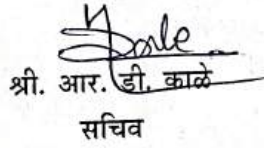 श्री. आर. डी. काळे
सचिव